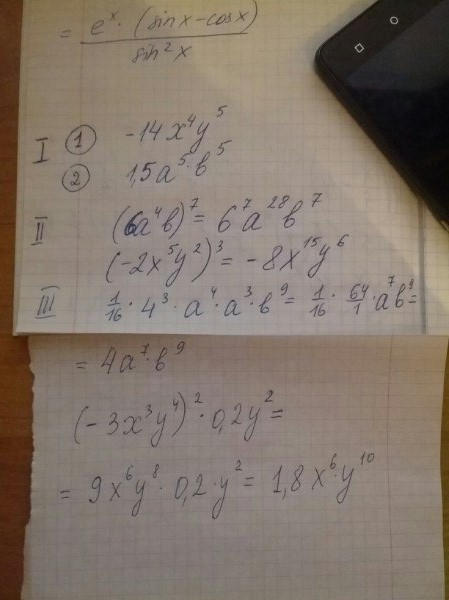 = e^x · (sin x - cos x) / sin²x
I ① -14x⁴y⁵
② 1,5a⁵·b⁵
II (6a⁴b)⁷ = 6⁷a²⁸b⁷
(-2x⁵y²)³ = -8x¹⁵y⁶
III 1/16 · 4³ · a⁴ · a³ · b⁹ = 1/16 · 64/1 · a⁷b⁹ =
= 4a⁷·b⁹
(-3x³y⁴)² · 0,2y² =
= 9x⁶y⁸ · 0,2·y² = 1,8x⁶·y¹⁰